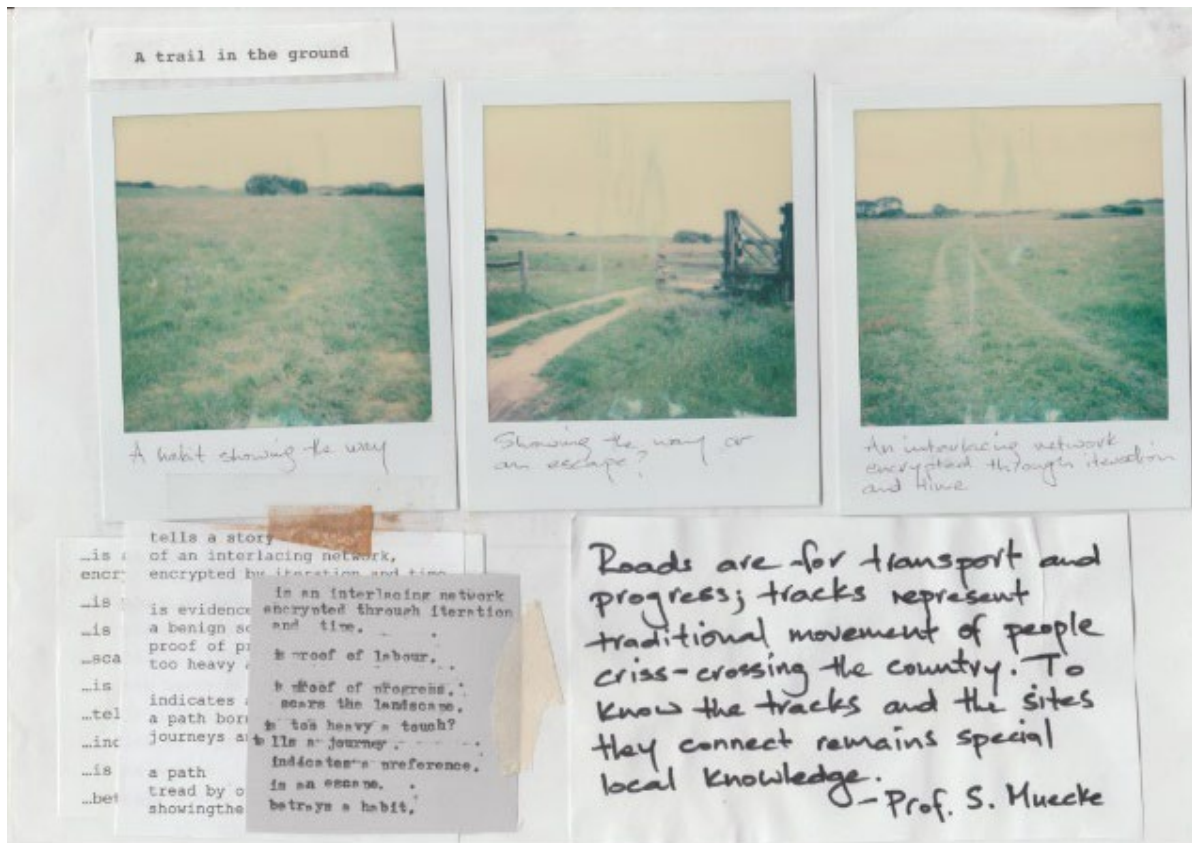 A trail in the ground
A habit showing the way
Showing the way or
an escape?
An interlacing network
encrypted through iteration
and time
…is
encr
…is
…is
…sca
…is
…tel
…ind
…is
…bet
tells a story
of an interlacing network,
encrypted by iteration and time
is evidence
a benign
proof of
too heavy
indicates
a path
journeys
a path
tread by
showingthe
is an interlacing network
encrypted through iteration
and time.
is proof of labour.
is proof of progress.
scars the landscape.
is too heavy a touch?
tells a journey.
indicates a preference.
is an escape.
betrays a habit.
Roads are for transport and
progress; tracks represent
traditional movement of people
criss-crossing the country. To
know the tracks and the sites
they connect remains special
local knowledge.
- Prof. S. Muecke